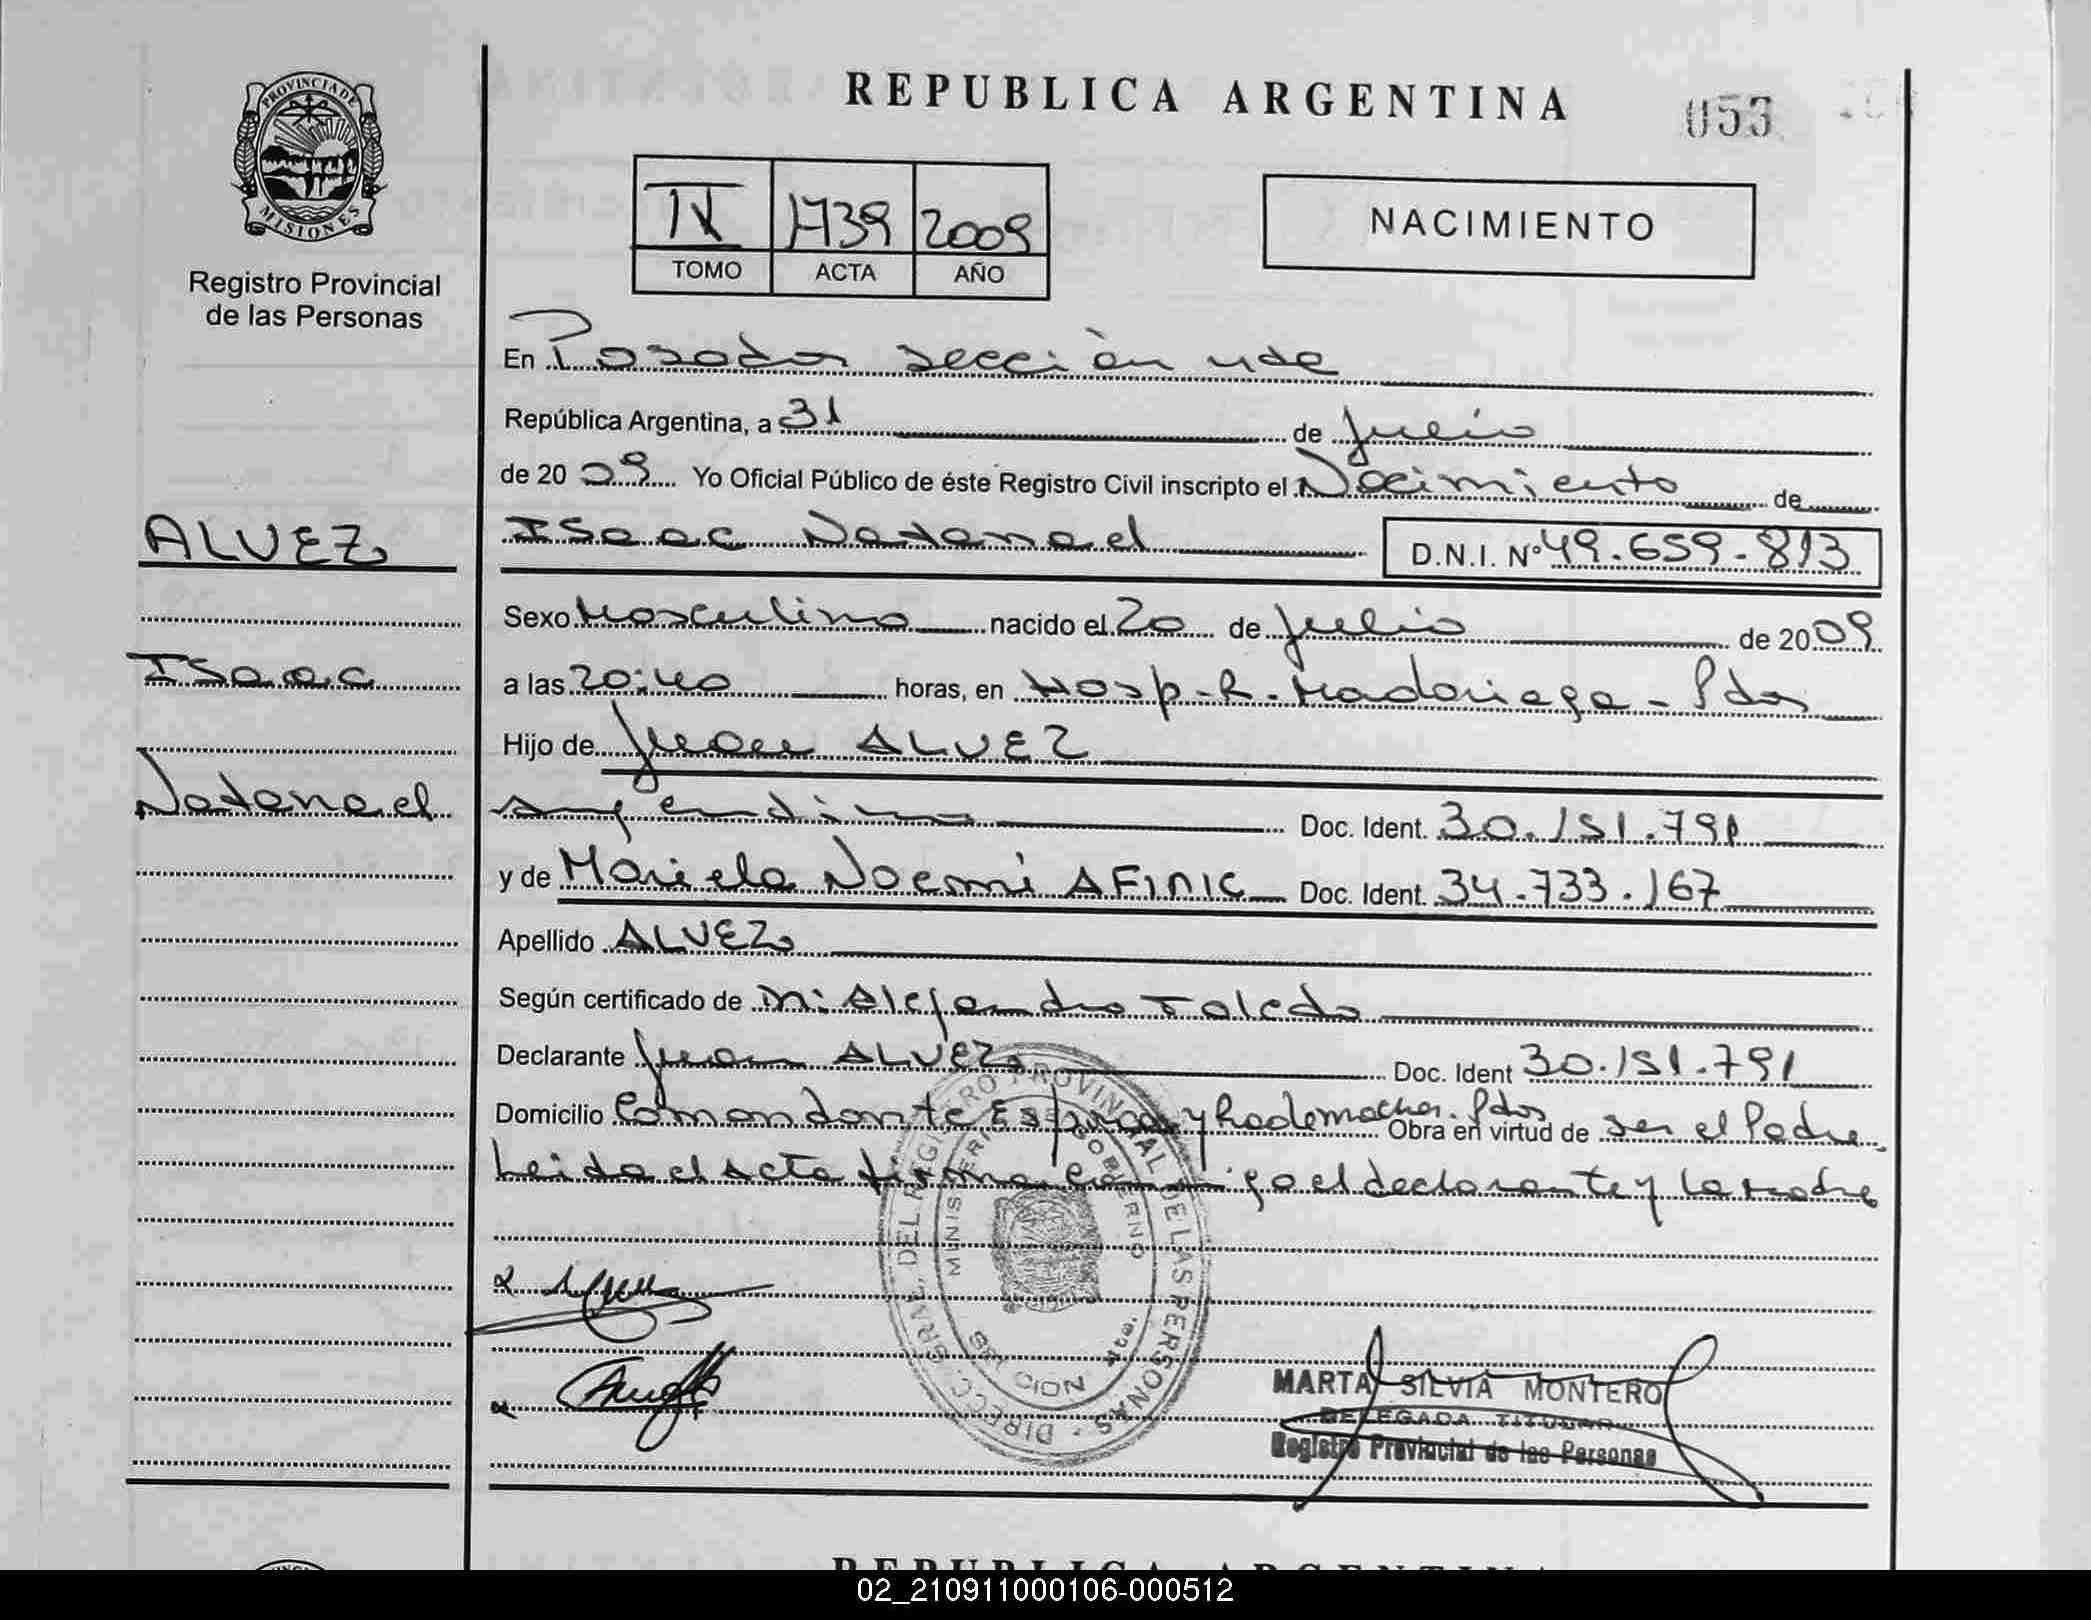 REPUBLICA ARGENTINA
053
PROVINCIA DE MISIONES
Registro Provincial
de las Personas
IV 1739 2009
TOMO ACTA AÑO
NACIMIENTO
En Posadas sección
República Argentina, a 31 de Julio
de 2009 Yo Oficial Público de éste Registro Civil inscripto el Nacimiento de
ALVEZ
Isaac Natanael D.N.I. Nº 49.659.813
Sexo Masculino nacido el 20 de Julio de 2009
Isaac
a las 20:40 horas, en Hosp. R. Madariaga - Pdas
Hijo de Juan ALVEZ
Natanael
Argentino Doc. Ident. 30.151.791
y de Mariela Noemí AFINIC Doc. Ident. 34.733.167
Apellido ALVEZ
Según certificado de Alejandro Toledo
Declarante Juan ALVEZ Doc. Ident 30.151.791
Domicilio Comandante Espora y Rademacher. Pdas Obra en virtud de ser el Padre.
Leida el acta firma conmigo el declarante y la madre
DIRECC. GRAL. DEL REGISTRO PROVINCIAL DE LAS PERSONAS
MINISTERIO GOBIERNO
MARTA SILVIA MONTERO
DELEGADA TITULAR
Registro Provincial de las Personas
REPUBLICA ARGENTINA
02_210911000106-000512